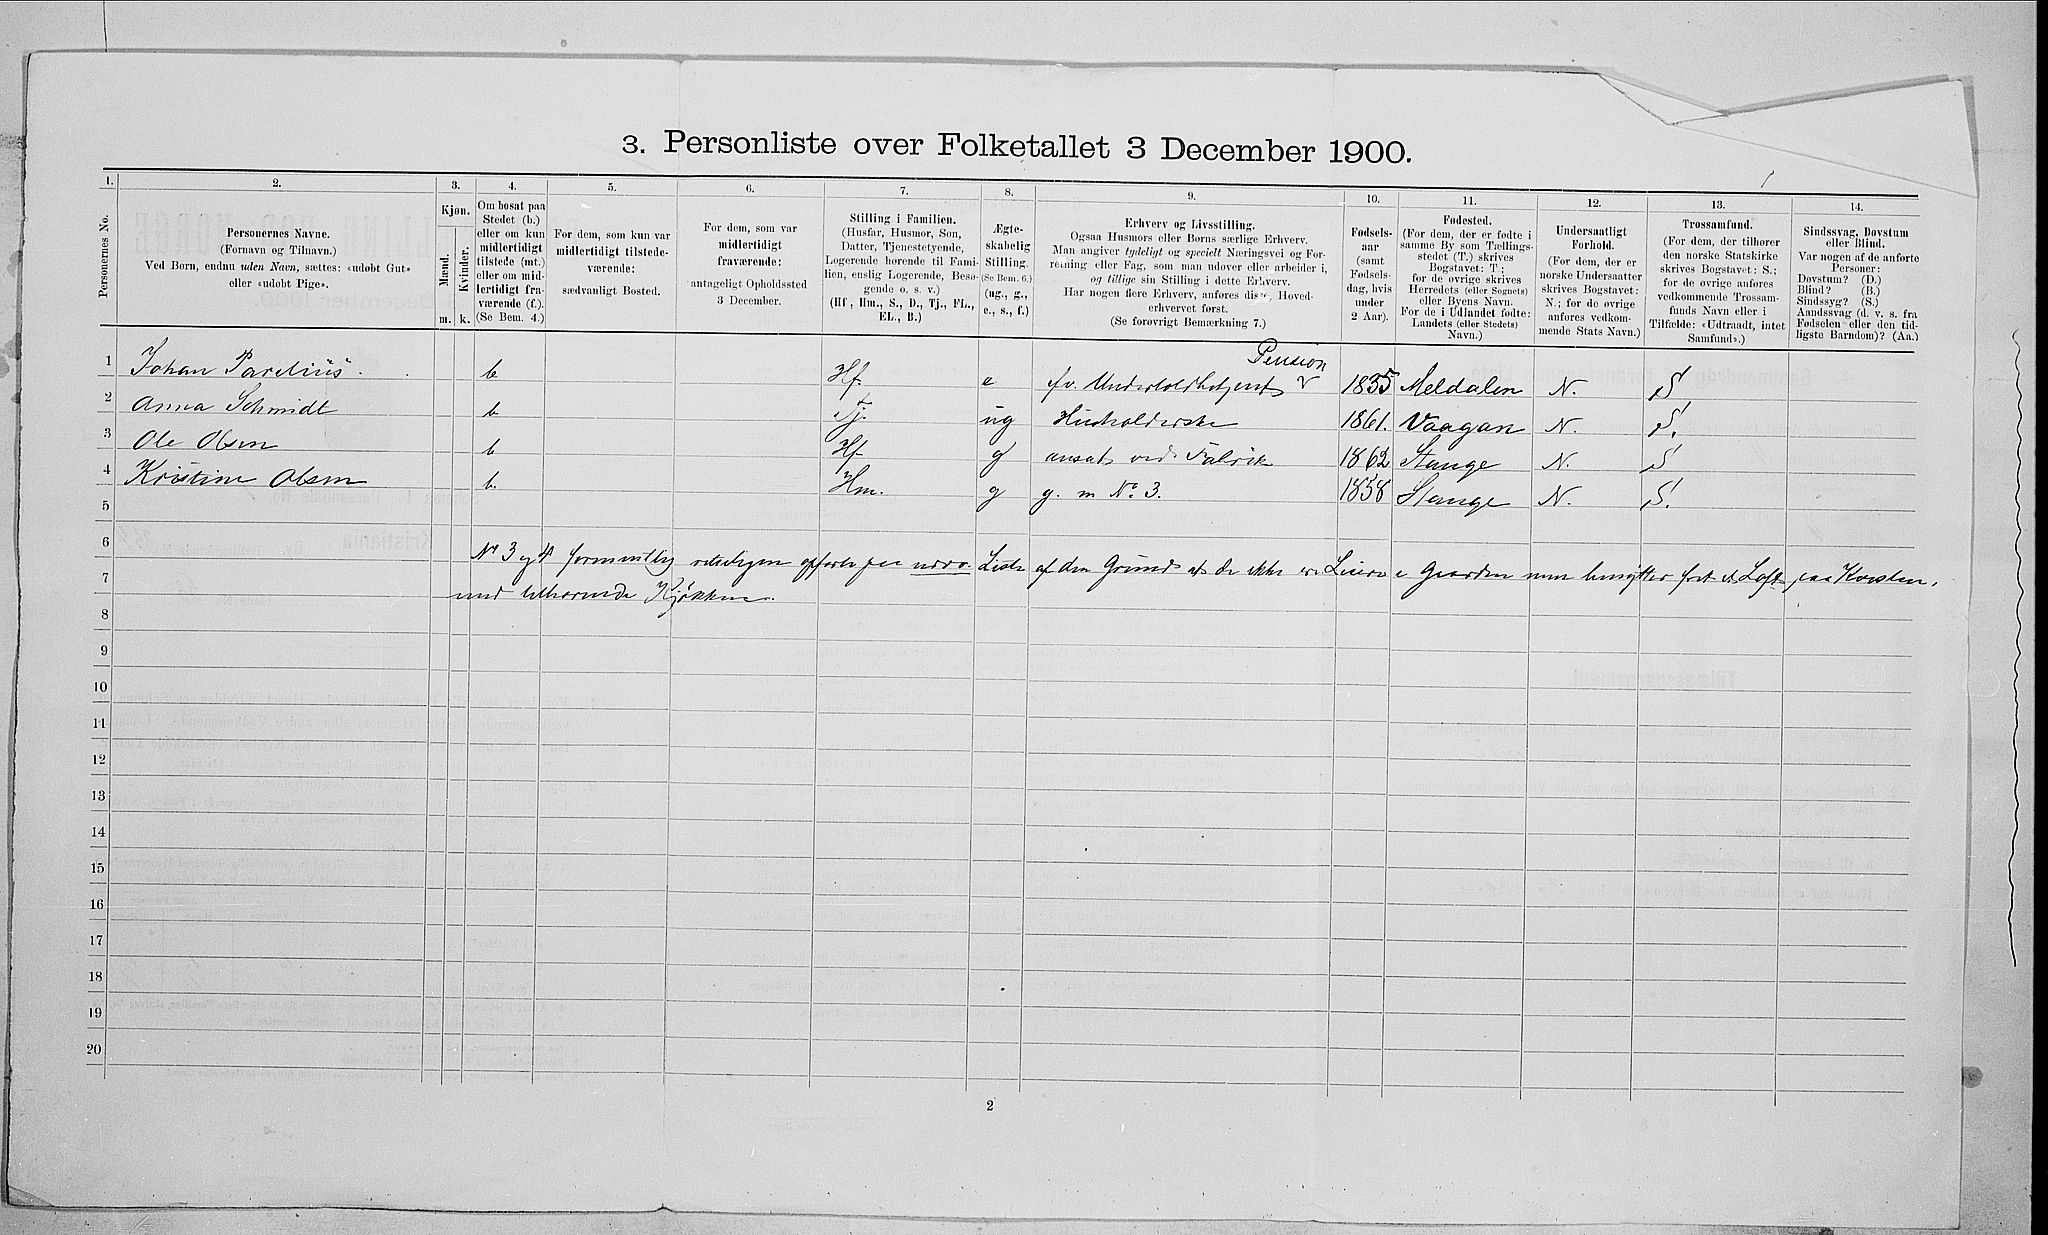 3. Personliste over Folketallet 3 December 1900.
1. 2. 3. 4. 5. 6. 7. 8. 9. 10. 11. 12. 13. 14.
Personernes No.
Personernes Navne.
(Fornavn og Tilnavn.)
Ved Børn, endnu uden Navn, sættes: «udøbt Gut»
eller «udøbt Pige».
Kjøn.
Mænd.
Kvinder.
m. k.
Om bosat paa
Stedet (b.)
eller om kun
midlertidigt
tilstede (mt.)
eller om mid-
lertidigt fra-
værende (f.).
(Se Bem. 4.)
For dem, som kun var
midlertidigt tilstede-
værende:
sædvanligt Bosted.
For dem, som var
midlertidigt
fraværende:
antageligt Opholdssted
3 December.
Stilling i Familien.
(Husfar, Husmor, Søn,
Datter, Tjenestetyende,
Logerende hørende til Fami-
lien, enslig Logerende, Besø-
gende o. s. v.)
(Hf., Hm., S., D., Tj., FL.,
EL., B.)
Ægte-
skabelig
Stilling.
(Se Bem. 6.)
(ug., g.,
e., s., f.)
Erhverv og Livsstilling.
Ogsaa Husmors eller Børns særlige Erhverv.
Man angiver tydeligt og specielt Næringsvei og For-
retning eller Fag, som man udøver eller arbeider i,
og tillige sin Stilling i dette Erhverv.
Har nogen flere Erhverv, anføres disse, Hoved-
erhvervet først.
(Se forøvrigt Bemærkning 7.)
Fødsels-
aar
(samt
Fødsels-
dag, hvis
under
2 Aar).
Fødested.
(For dem, der er fødte i
samme By som Tællings-
stedet (T.) skrives
Bogstavet: T.;
for de øvrige skrives
Herredets (eller Sognets)
eller Byens Navn.
For de i Udlandet fødte:
Landets (eller Stedets)
Navn.)
Undersaatligt
Forhold.
(For dem, der er
norske Undersaatter
skrives Bogstavet:
N.; for de øvrige
anføres vedkom-
mende Stats Navn.)
Trossamfund.
(For dem, der tilhører
den norske Statskirke
skrives Bogstavet: S.;
for de øvrige anføres
vedkommende Trossam-
funds Navn eller i
Tilfælde: «Udtraadt, intet
Samfund».)
Sindssvag, Døvstum
eller Blind.
Var nogen af de anførte
Personer:
Døvstum? (D.)
Blind? (B.)
Sindssyg? (S.)
Aandssvag (d. v. s. fra
Fødselen eller den tid-
ligste Barndom)? (Aa.)
Pension
1 Johan Parelius b Hf. e fv. 1835 Meldalen N. S
2 Anna Schmidt b Tj. ug Husholderske 1861. Vaagan N. S.
3 Ole Olsen b Hf. g ansat ved Fabrik 1862 Stange N. S
4 Kristine Olsen b. Hm. g g. m No. 3. 1858 Stange N. S.
5
6
No 3 og 4 opført paa Liste af den Grund at de ikke er i Gaarden men benytter et Loft paa Kvisten,
7
med tilhørende Kjøkken.
8
9
10
11
12
13
14
15
16
17
18
19
20
2